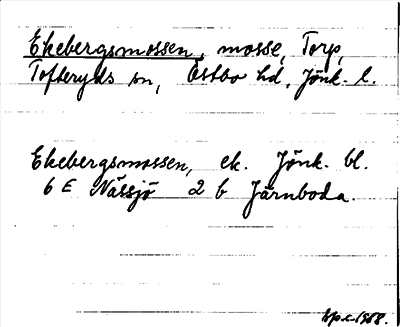 Ekebergsmossen, mosse, Torp,
Tofteryds sn, Östbo hd, Jönk. l.
Ekebergsmossen, ek. Jönk. bl.
6 E Nässjö 2 b Järnboda.
1968.